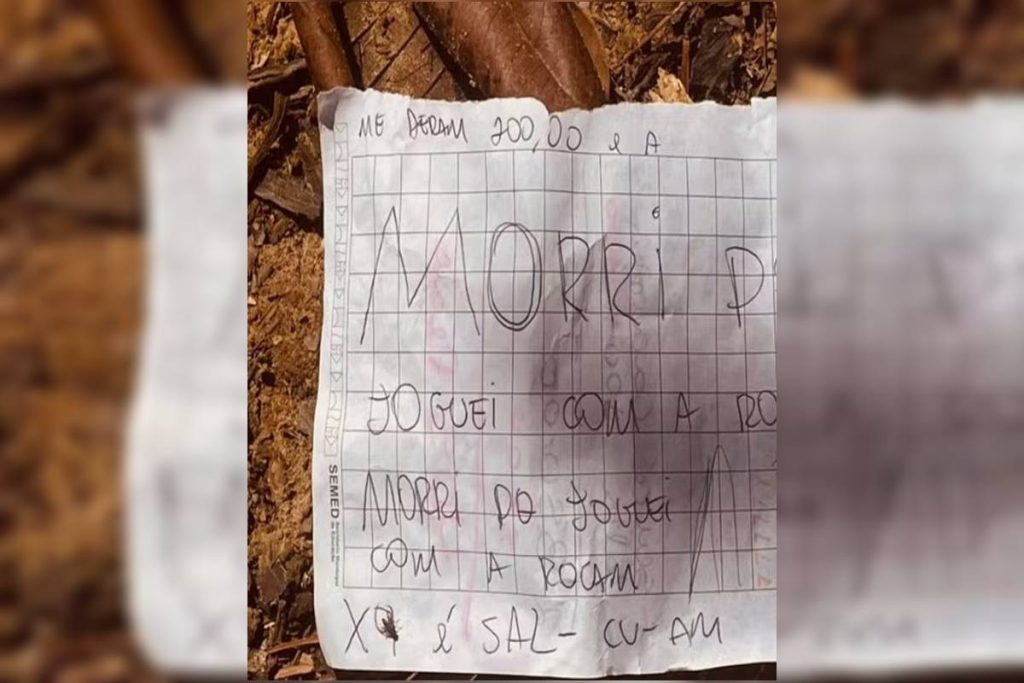 ME DERAM 200,00 e A
MORRI P
JOGUEI COM A RO
MORRI PQ JOGUEI
COM A ROCAM
X9 é SAL- CV-AM
SEMED